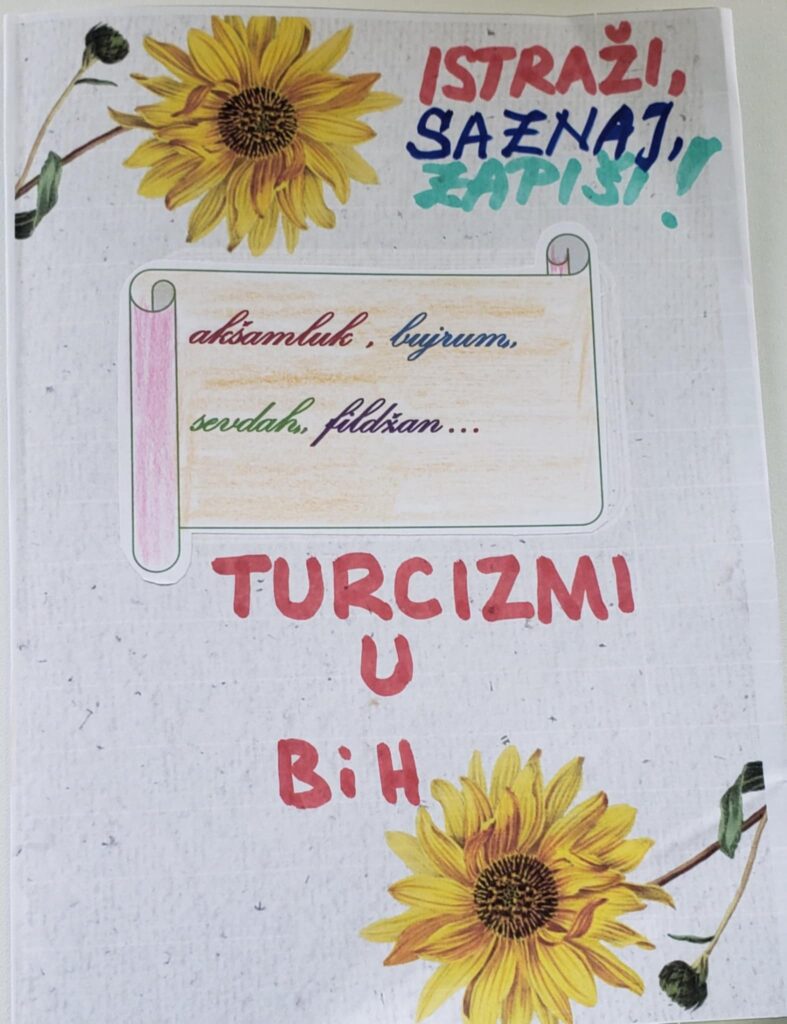 ISTRAŽI,
SAZNAJ,
ZAPIŠI!
akšamluk , bujrum,,
sevdah,, fildžan...
TURCIZMI
U
BiH